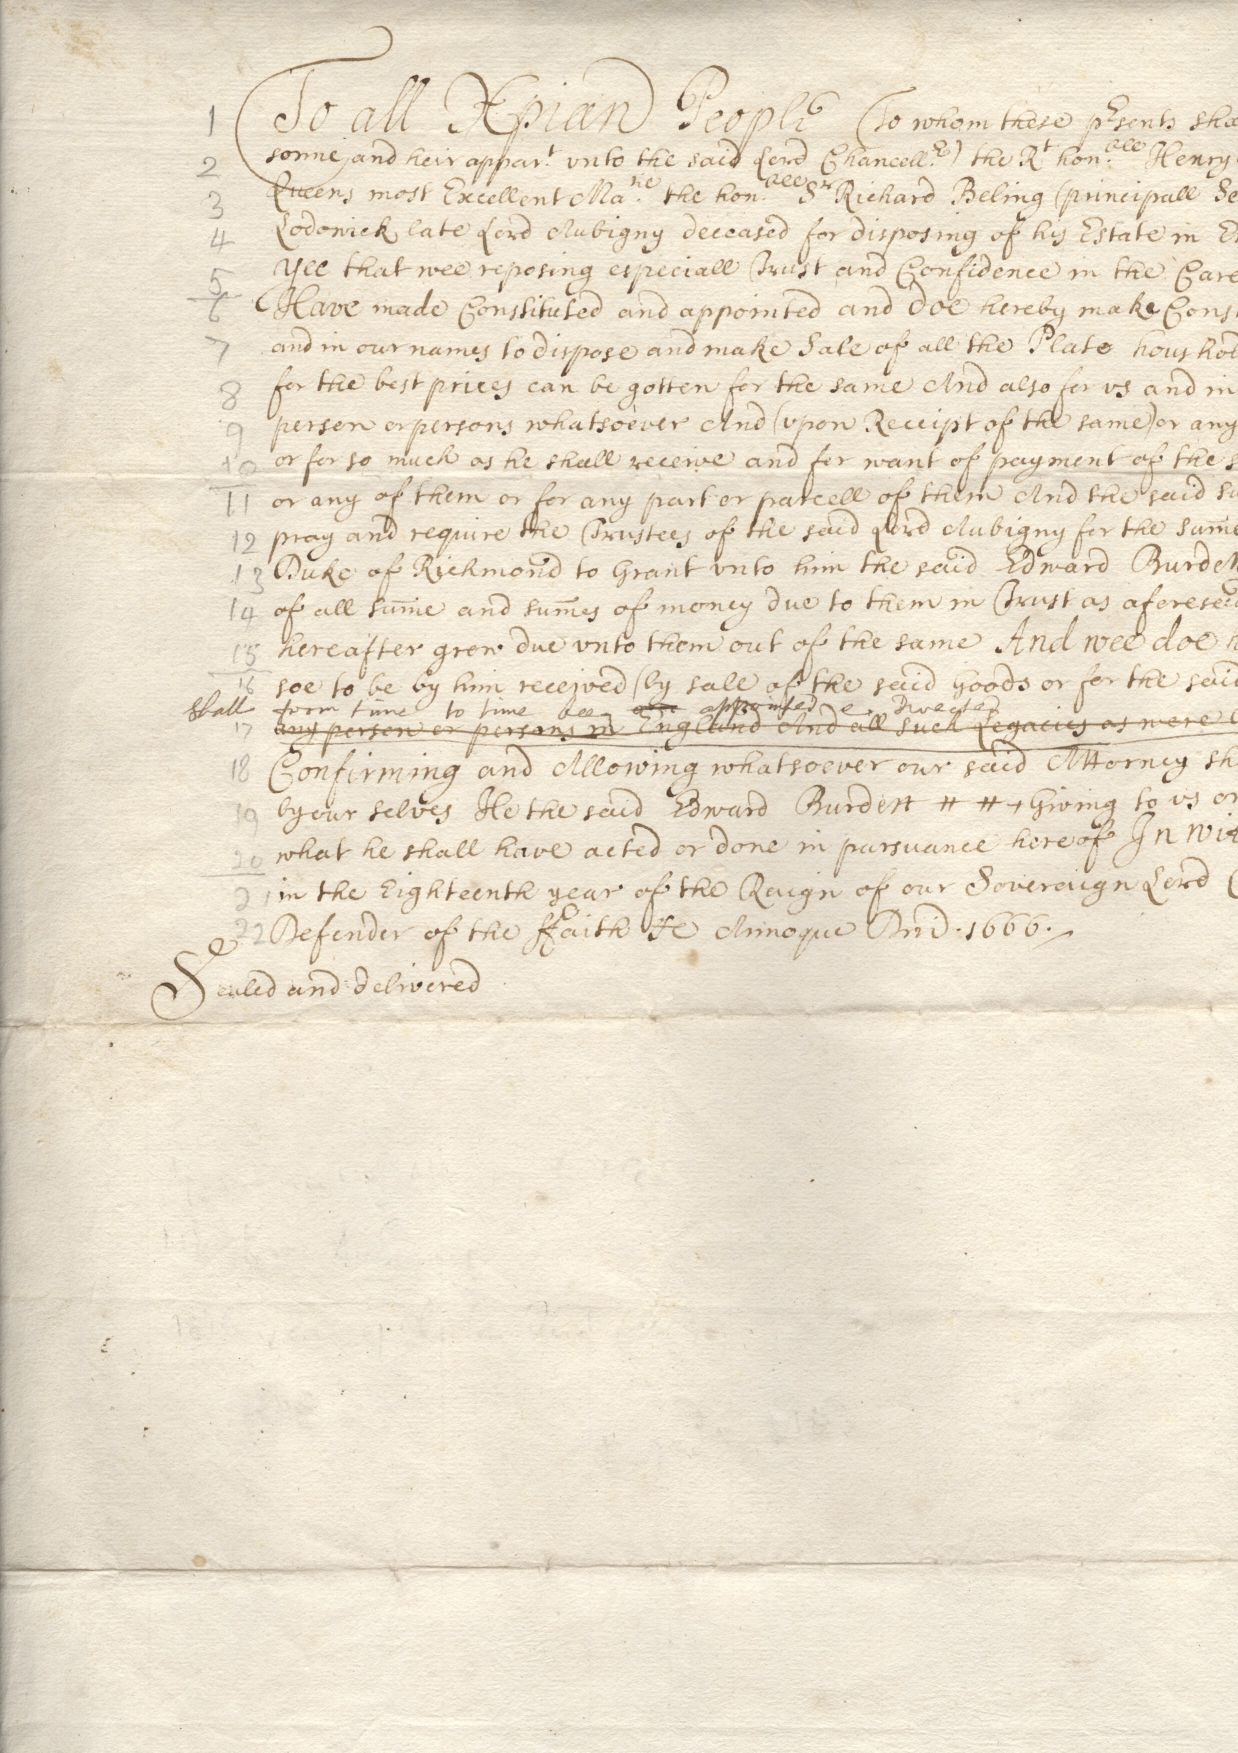 1 To all Xpian People (To whom these pᵉsents sha
2 sonne and heir apparᵗ vnto the said Lord Chancellᵒʳ) the Rᵗ honᵇˡᵉ Henry
3 Queens most Excellent Maᵗⁱᵉ the honᵇˡᵉ Sʳ Richard Beling (principall Se
4 Lodowick late Lord Aubigny deceased for disposing of his Estate in E
5 Yee that wee reposing especiall Trust and Confidence in the Care
6 Have made Constituted and appointed and doe hereby make Const
7 and in our names to dispose and make Sale of all the Plate houshol
8 for the best prices can be gotten for the same And also for vs and in
9 person or persons whatsoever And (vpon Receipt of the same) or any
10 or for so much as he shall receive and for want of payment of the s
11 or any of them or for any part or parcell of them And the said su
12 pray and require the Trustees of the said Lord Aubigny for the sum̄e
13 Duke of Richmond to Grant vnto him the said Edward Burdett
14 of all sum̄e and sum̄es of money due to them in Trust as aforesaid
15 hereafter grow due vnto them out of the same And wee doe
16 soe to be by him received (by sale of the said Goods or for the said
shall from time to time bee appointed directed
17 any person or persons in England And all such Legacies as were
18 Confirming and Allowing whatsoever our said Attorney sh
19 by our selves He the said Edward Burdett Giving to vs or
20 what he shall have acted or done in pursuance here of In wit
21 in the Eighteenth year of the Raign of our Sovereign Lord
22 Defender of the ffaith &c Annoque Dn̄i. 1666.
Sealed and delivered